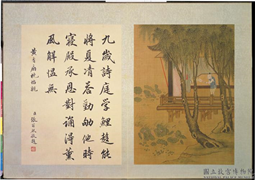 九歲詩庭學鯉趨能
將夏清答勤劬他時
寢殿承恩對誦得薰
風解慍無
黃香扇枕
敬題
國立故宮博物院